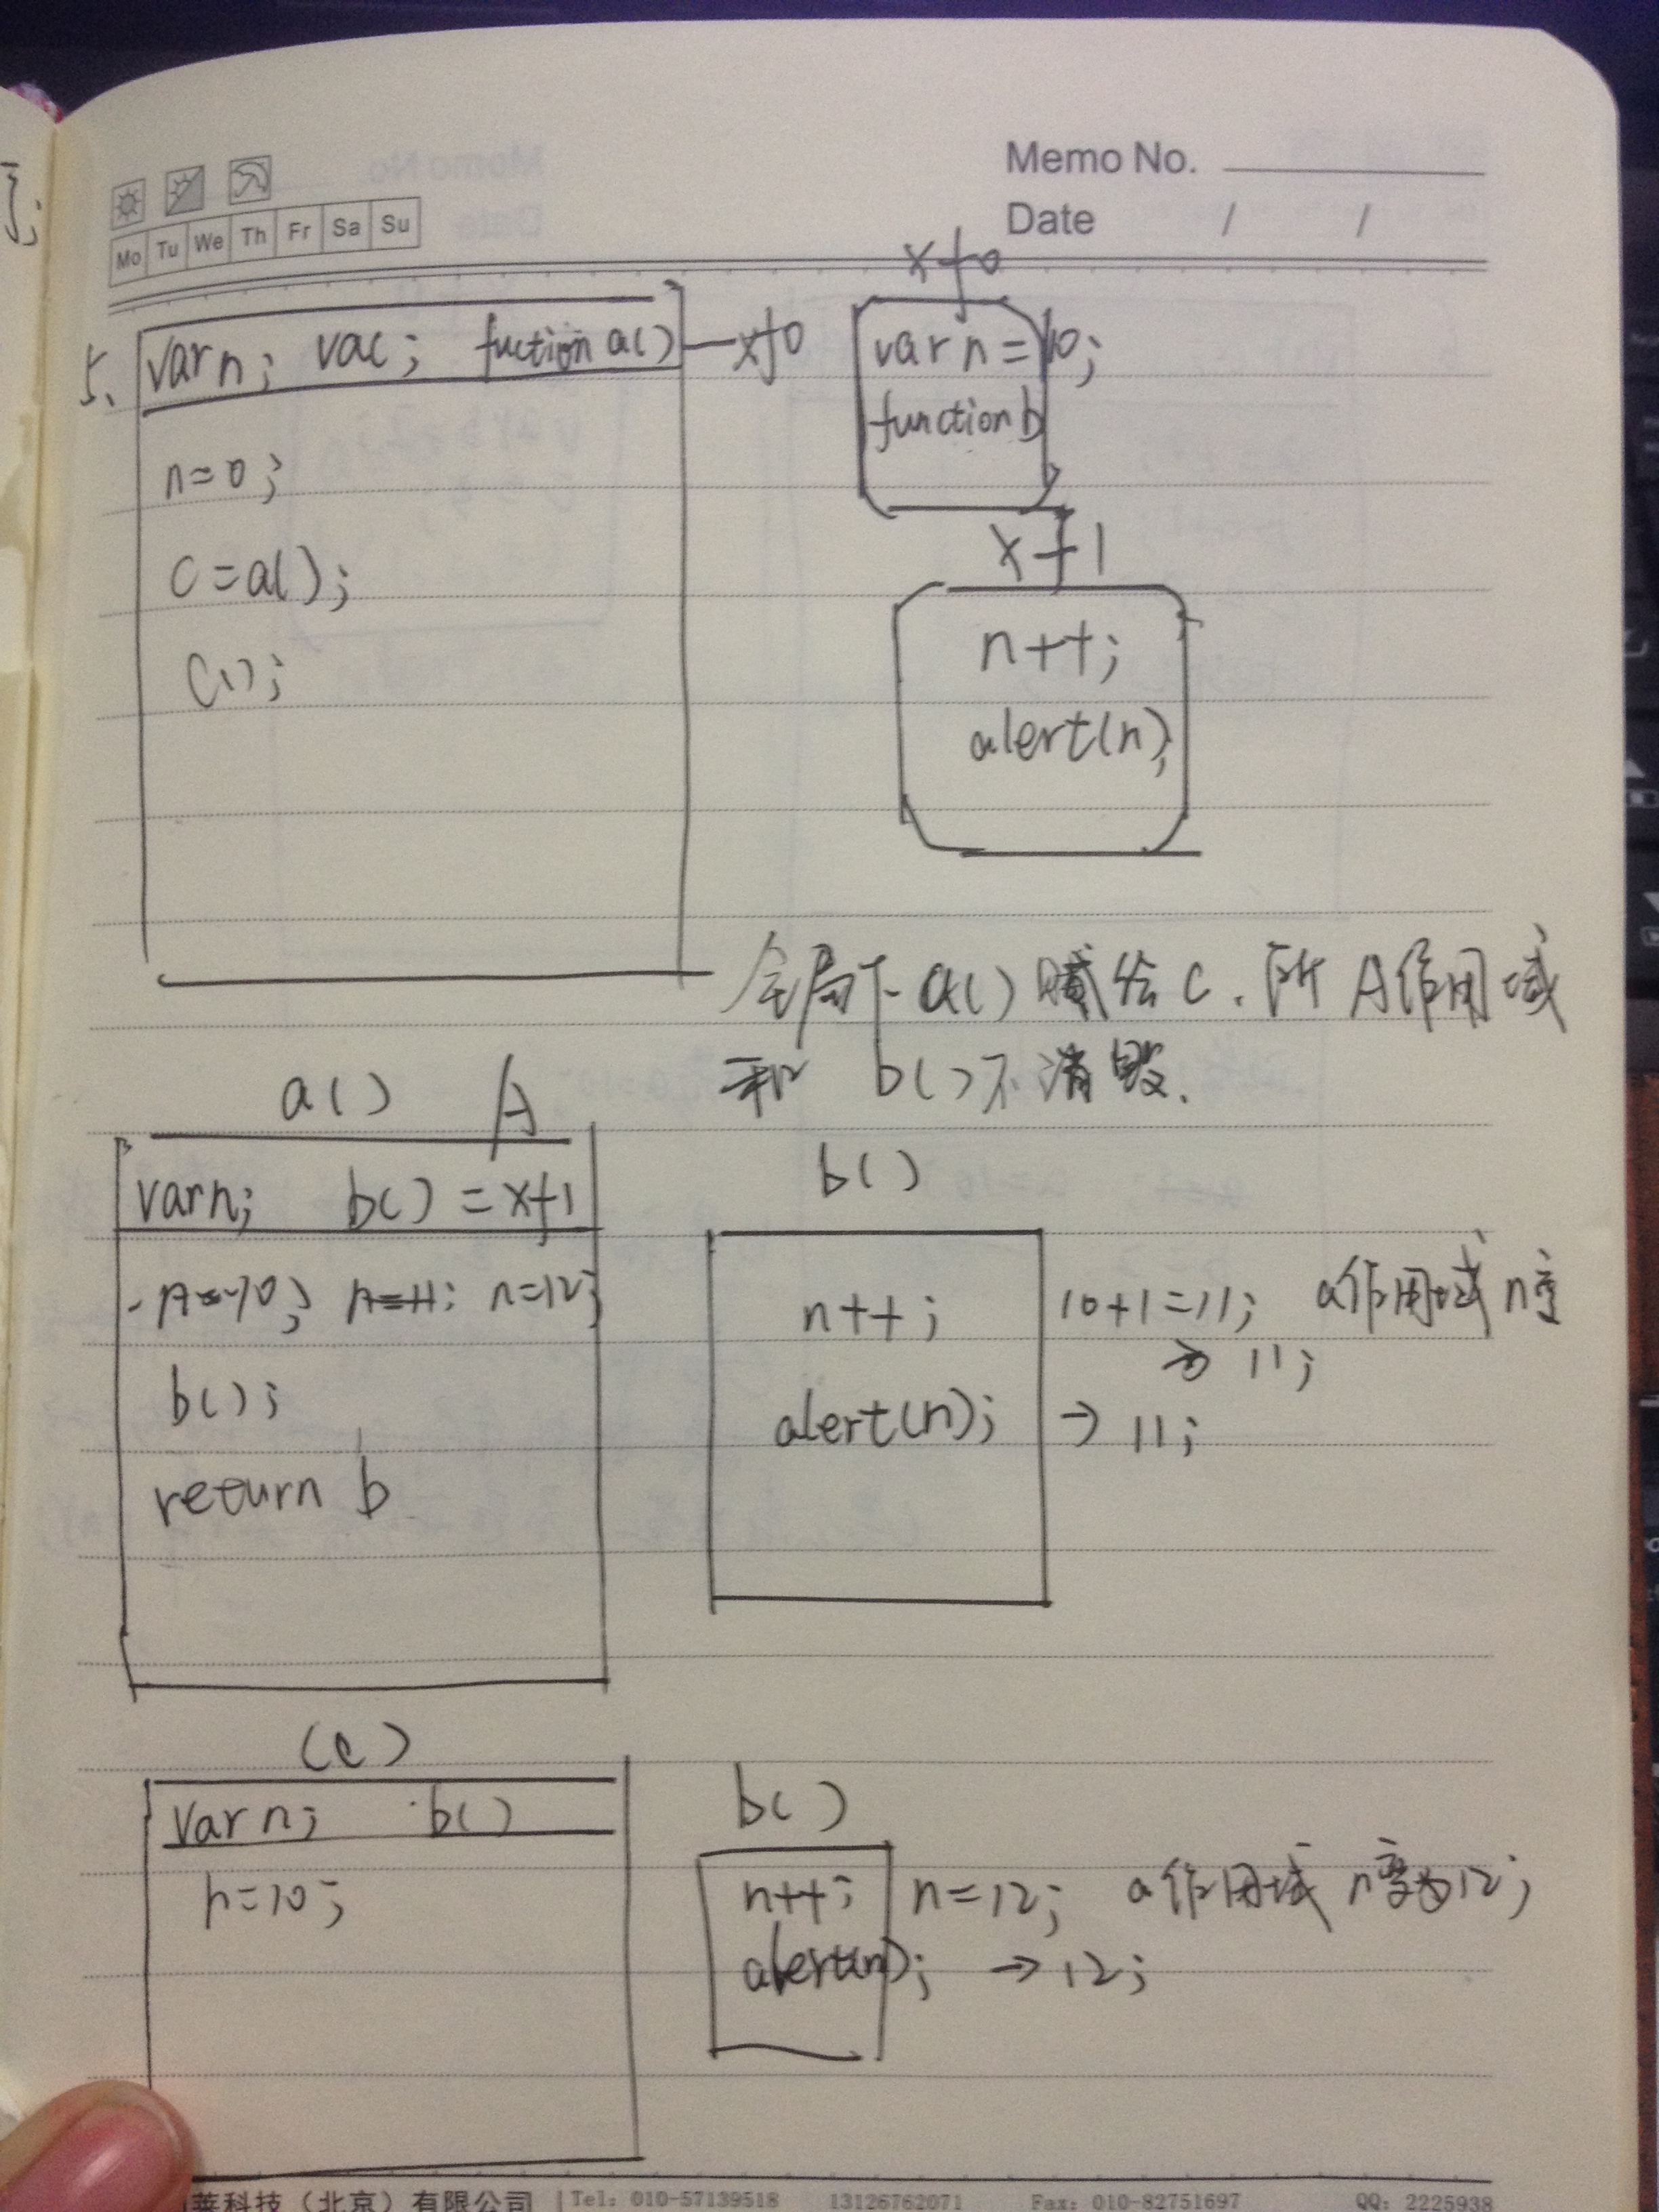 Memo No.
Date / /
Mo Tu We Th Fr Sa Su
5、
var n; vac; fuction a() xf0
n=0;
c=a();
c();
xf0
var n=10;
function b
xf1
n++;
alert(n);
全局下 a()赋给 c、所 A作用域
和 b()不消毁.
a() A
var n; b()=xf1
n=10; n=11; n=12;
b();
return b
b()
n++; 10+1=11; a作用域 n变
→ 11;
alert(n); → 11;
(c)
var n; b()
n=10;
b()
n++; n=12; a作用域 n变为12;
alert(n); → 12;
科技（北京）有限公司 | Tel: 010-57139518 13126762071 Fax: 010-82751697 QQ: 2225938